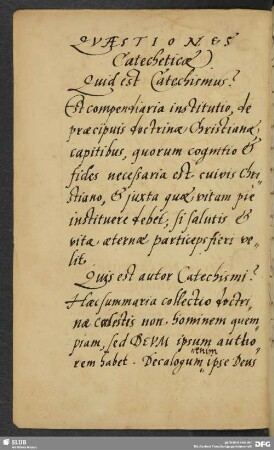 QVÆSTIONES
Catecheticæ.
Quid est Catechismus?
Est compendiaria institutio, de
præcipuis doctrinæ Christianæ
capitibus, quorum cognitio &
fides necessaria est cuivis Chri-
stiano, & juxta quæ vitam pie
instituere debet, si salutis &
vitæ æternæ particeps fieri ve-
lit.
Quis est autor Catechismi?
Hæc summaria collectio doctri-
næ cœlestis non hominem quem-
piam, sed DEVM ipsum autho-
rem habet. Decalogum enim ipse Deus
SLUB
DFG